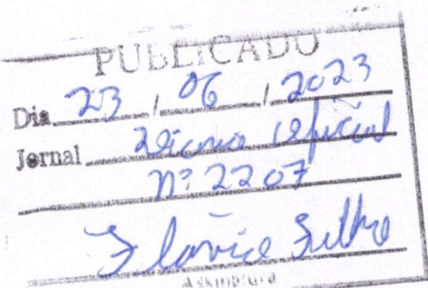 PUBLICADO
Dia 23 / 06 / 2023
Jornal Diário Oficial
nº 2207
Assinatura